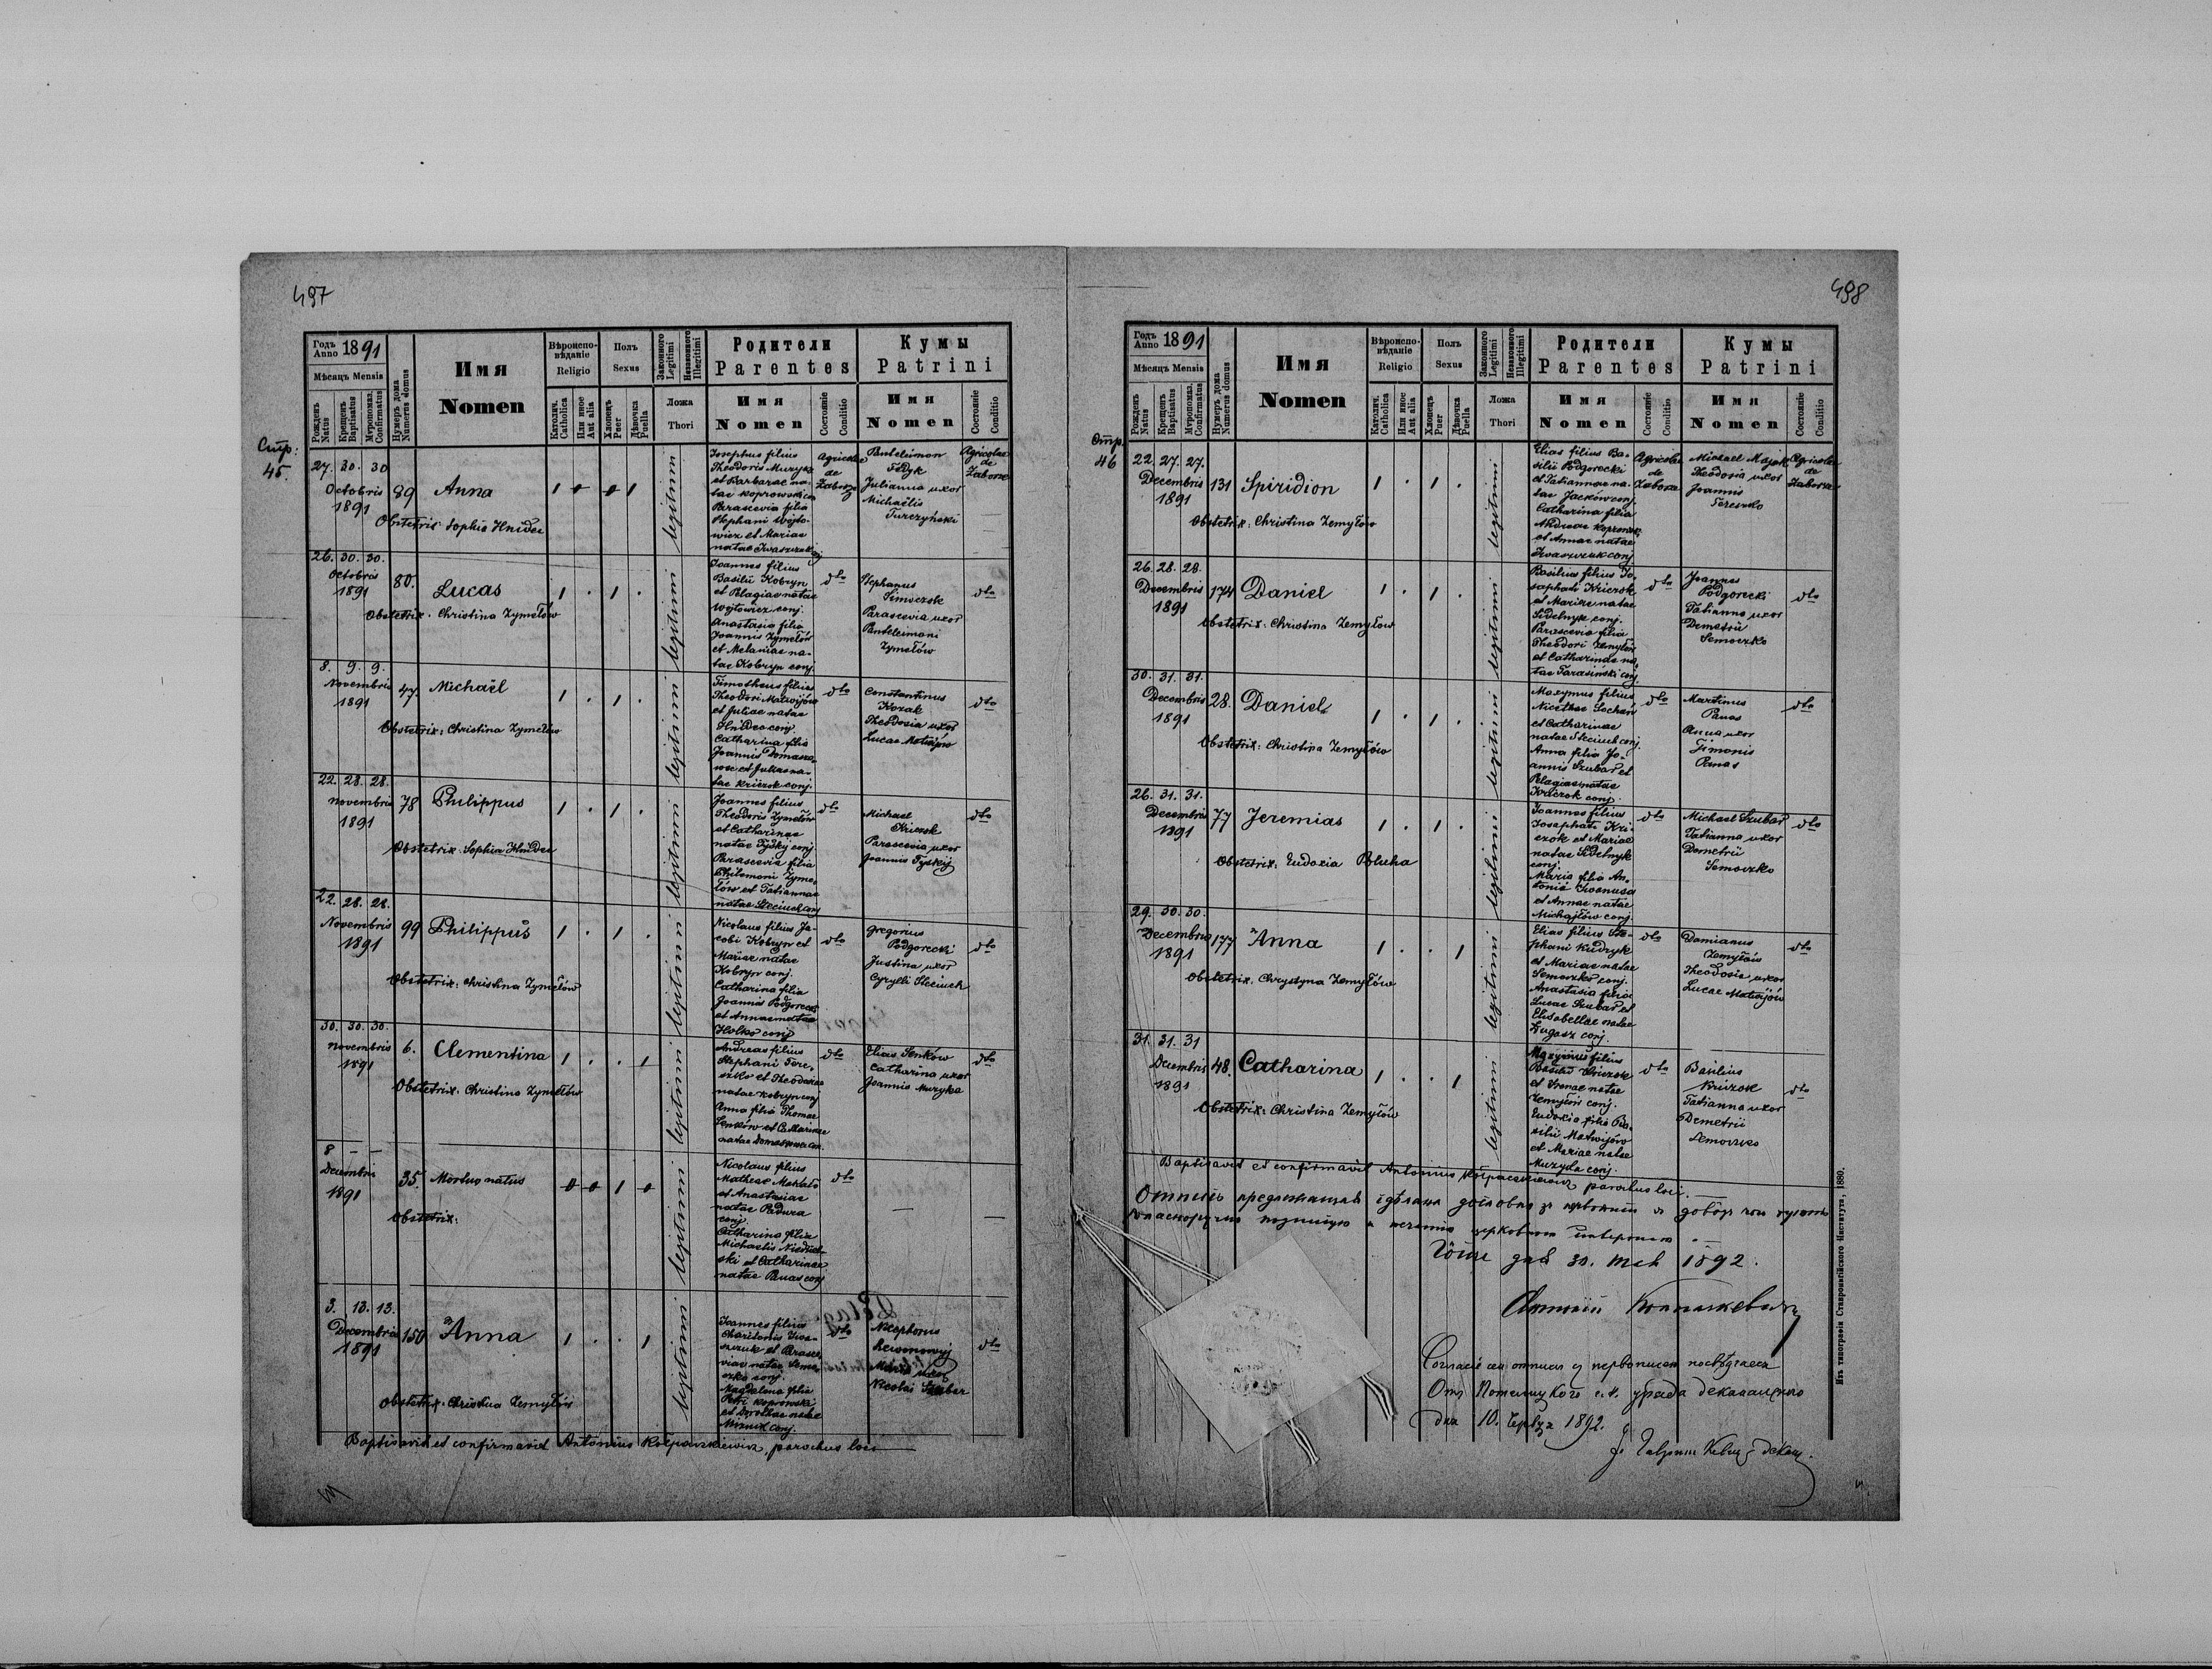 497
Годъ Anno 1891
Мѣсяцъ Mensis
Рожденъ Natus
Крещенъ Baptisatus
Мѵропомаз. Confirmatus
Нумеръ дома Numerus domus
Имя
Nomen
Вѣроисповѣданіе Religio
Католич. Catholica
Или иное Aut alia
Полъ Sexus
Хлопецъ Puer
Дѣвочка Puella
Законного Legitimi
Незаконного Illegitimi
Ложа Thori
Родители
Parentes
Имя
Nomen
Состояніе Conditio
Кумы
Patrini
Имя
Nomen
Состояніе Conditio
Стр:
45.
27. 30. 30
Octobris
1891
89
Anna
Obstetrix Sophia Hnidec
legitimi
Josephus filius
Theodoris Muzyka
et Barbarae na-
tae Koprowska
Parascevia filia
Stephani Wojto-
wicz et Mariae
natae Iwaszczuk conj
Agricolae
de
Zaborze
Panteleimon
Fedyk
Julianna uxor
Michaëlis
Turczyński
Agricolae
de
Zaborze
26. 30. 30.
Octobris
1891
80.
Lucas
Obstetrix. Christina Zymełów
legitimi
Joannes filius
Basilii Kobryn
et Pelagiae natae
Wojtowicz conj.
Anastasia filia
Joannis Zymełów
et Melaniae na-
tae Kobryn conj.
dto
Stephanus
Simoczok
Parascevia uxor
Panteleimoni
Zymełów
dto
8. 9. 9.
Novembris
1891
47.
Michaël
Obstetrix: Christina Zymełów
legitimi
Timotheus filius
Theodori Matwijów
et Juliae natae
Hnidec conj.
Catharina filia
Joannis Domasze-
wec et Juliae na-
tae Kriczok conj.
dto
Constantinus
Kozak
Theodosia uxor
Lucae Matwijów
dto
22. 28. 28.
novembris
1891
78
Philippus
Obstetrix. Sophia Hnidec
legitimi
Joannes filius
Theodoris Zymełów
et Catharinae
natae Tyśky conj
Parascevia filia
Philemoni Zyme-
łów et Tatiannae
natae Steciuch conj
dto
Michael
Kriczok
Parascevia uxor
Joannis Tyskij
dto
22. 28. 28.
Novembris
1891
99
Philippus
Obstetrix: Christina Zymełów
legitimi
Nicolaus filius Ja-
cobi Kobryn et
Mariae natae
Kobryn conj.
Catharina filia
Joannis Podgorecki
et Annae natae
Holko conj
dto
Gregorius
Podgorecki
Justina uxor
Cyrylli Steciuch
dto
30. 30. 30.
novembris
1891
6.
Clementina
Obstetrix. Christina Zymełów
legitimi
Andreas filius
Stephani Tere-
szko et Theodosiae
natae Kobryn conj
Anna filia Thomae
Senków et Catharinae
natae Domaszewec con.
dto
Elias Senków
Catharina uxor
Joannis Muzyka
dto
8 — —
Decembris
1891
35.
Mortuo natus
Obstetrix:
legitimi
Nicolaus filius
Matheae
et Anastasiae
natae Padura
conj.
Catharina filia
Michaelis
ski et Catharinae
natae Panas conj
dto
3. 13. 13.
Decembris
1891
150
Anna
Obstetrix. Christina Zemyłów
legitimi
Joannes filius
Charitonis Iwa-
szczuk et Parasce-
viae natae Semo-
czko conj.
Magdalena filia
Petri Koprowski
et Dorotheae natae
conj.
dto
Nicephorus
Maria uxor
Nicolai Szubar
dto
Baptisavit et confirmavit Antonius Kołpaczkiewicz, parochus loci
498
Годъ Anno 1891
Мѣсяцъ Mensis
Рожденъ Natus
Крещенъ Baptisatus
Мѵропомаз. Confirmatus
Нумеръ дома Numerus domus
Имя
Nomen
Вѣроисповѣданіе Religio
Католич. Catholica
Или иное Aut alia
Полъ Sexus
Хлопецъ Puer
Дѣвочка Puella
Законного Legitimi
Незаконного Illegitimi
Ложа Thori
Родители
Parentes
Имя
Nomen
Состояніе Conditio
Кумы
Patrini
Имя
Nomen
Состояніе Conditio
Стр.
46
22. 27. 27.
Decembris
1891
131
Spiridion
Obstetrix: Christina Zemyłów
legitimi
Elias filius Ba-
silii Podgorecki
et Tatiannae na-
tae Jacków conj.
Catharina filia
Andreae Koprowski
et Annae natae
Iwaszczuk conj
Agricolae
de
Zaborze
Michael
Theodosia uxor
Joannis
Tereszko
Agricolae
de
Zaborze
26. 28. 28.
Decembris
1891
174
Daniel
Obstetrix: Christina Zemyłów
legitimi
Basilius filius Jo-
saphati Kriczok
et Mariae natae
Sidelnyk conj.
Parascevia filia
Theodori Zemyłów
et Catharinae na-
tae Tarasiński conj.
dto
Joannes
Podgorecki
Tatianna uxor
Demetrii
Semoczko
dto
30. 31. 31.
Decembris
1891
28.
Daniel
Obstetrix: Christina Zemyłów
legitimi
Maxymus filius
Nicethae
et Catharinae
natae Steciuch conj.
Anna filia Jo-
annis Szubar et
Pelagiae natae
Kriczok conj.
dto
Martinus
Panas
Anna uxor
Simonis
Panas
dto
26. 31. 31.
Decembris
1891
77
Jeremias
Obstetrix: Eudoxia
legitimi
Joannes filius
Josephati Kri-
czok et Mariae
natae Sidelnyk
conj.
Maria filia An-
tonii Iwanusa
et Annae natae
Michajłów conj
dto
Michael Szubar
Tatianna uxor
Demetrii
Semoczko
dto
29. 30. 30.
Decembris
1891
177
Anna
Obstetrix. Chrystyna Zemyłów
legitimi
Elias filius Ste-
phani Kudryk
et Mariae natae
Semoczko conj.
Anastasia filia
Lucae Szubar et
Elisabethae natae
Ługosz conj.
dto
Damianus
Zemyłów
Theodosia uxor
Lucae Matwijów
dto
31. 31. 31
Decembris
1891
48.
Catharina
Obstetrix: Christina Zemyłów
legitimi
Maxymus filius
Basilii Kriczok
et Irenae natae
Zemyłów conj.
Eudoxia filia Ba-
silii Matwijów
et Mariae natae
Muzyka conj.
dto
Basilius
Kriczok
Tatianna uxor
Demetrii
Semoczko
dto
Baptisavit et confirmavit Antonius Kołpaczkiewicz parochus loci.
1892.
дня 10. Червця 1892.
Изъ типографіи Ставропигійского Института, 1880.